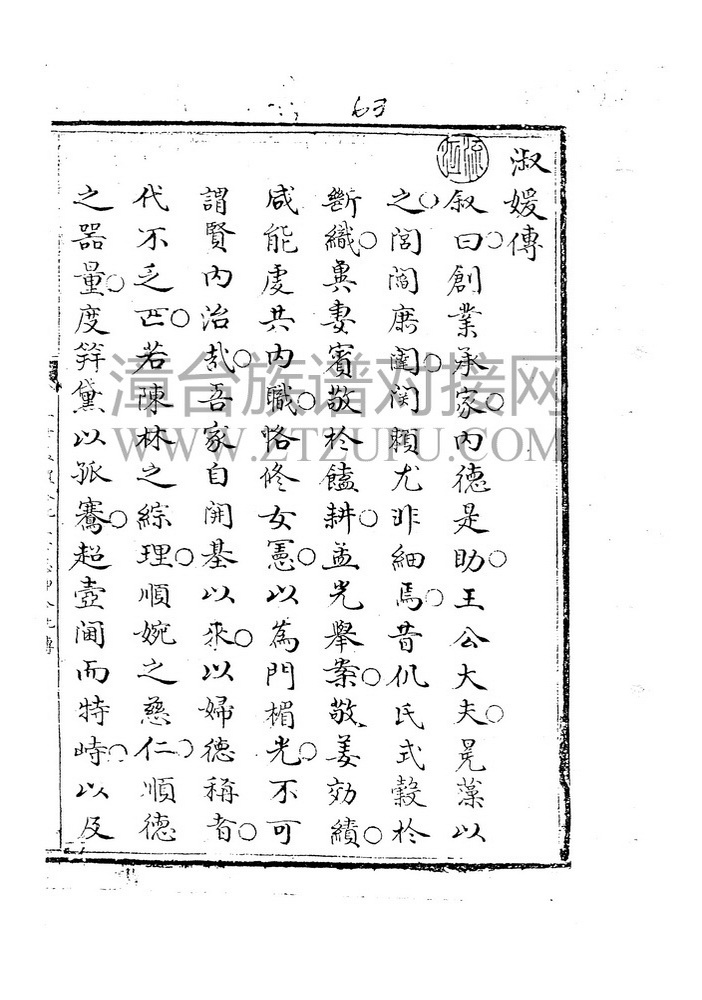 63
淑媛傳
叙曰○創業承家○内德是助○王公大夫○晃藻以
之○閭閻康闥○閔賴尤非細焉○昔仉氏式穀於
斷織○冀妻賓敬於饁耕○孟光舉案○敬姜効績○
咸能虔共内職○恪修女憲○以為門楣光○不可
謂賢内治哉○吾家自開基以來○以婦德稱者○
代不乏○若陳林之綜理○順婉之慈仁○順德
之器量○度笄黛以孤騫○超壼閫而特峙○以及
漳台族谱对接网
WWW.ZTZUPU.COM